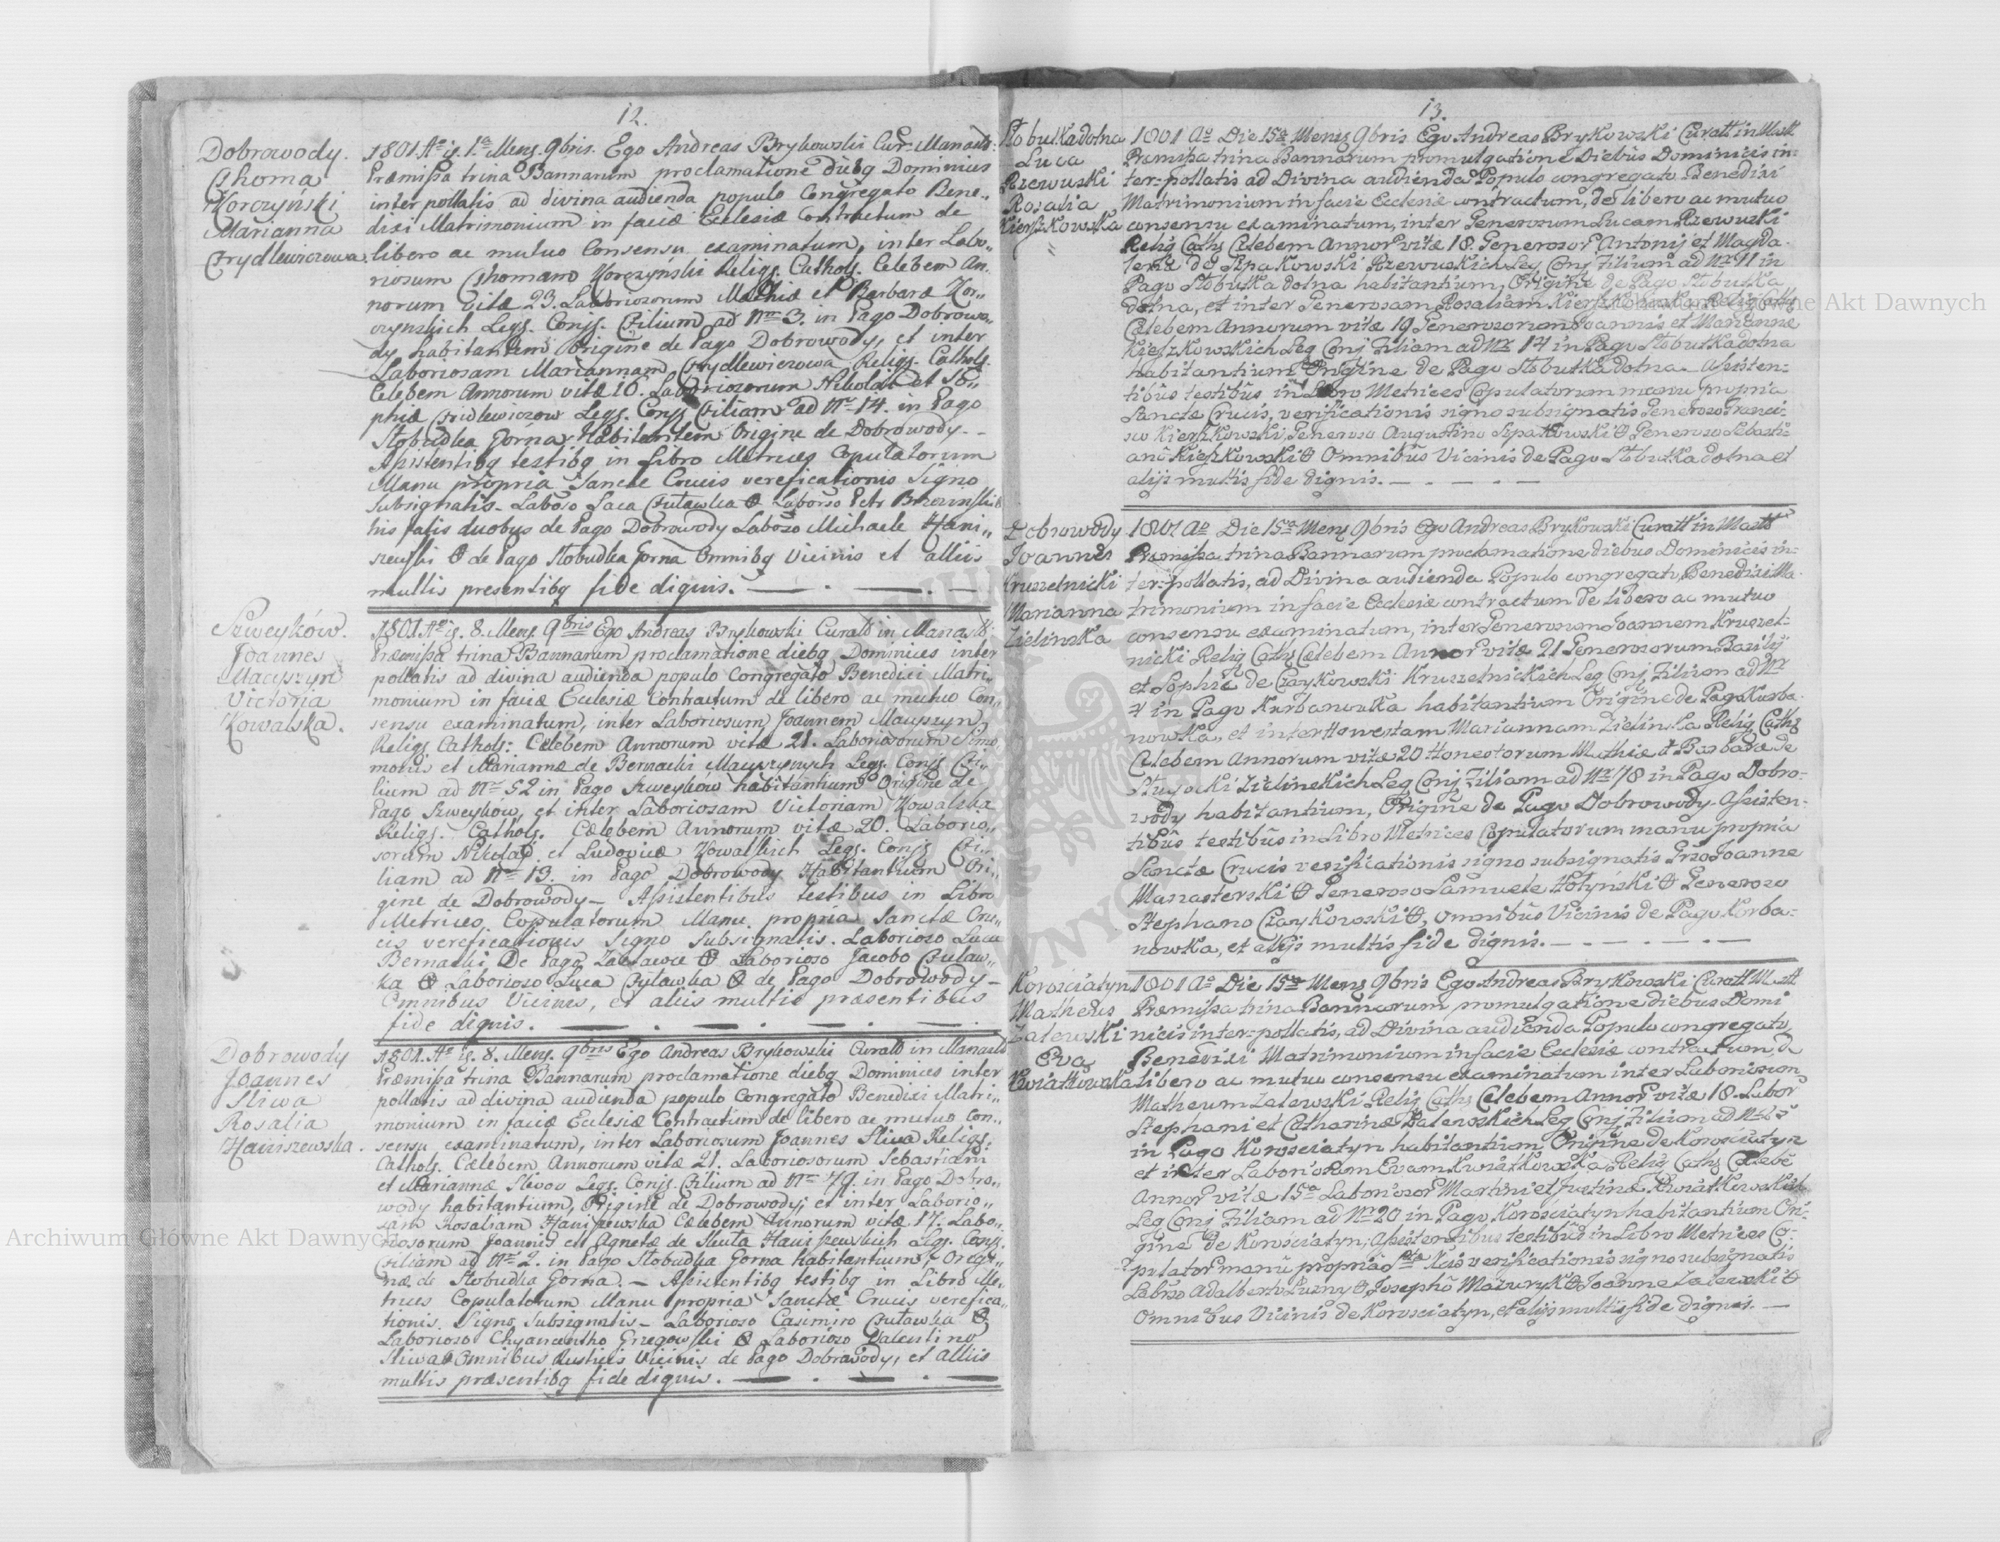 12.
Dobrowody.
Thoma
Korczyński
Marianna
Frydlewiczowa
1801 Ao is. 1.a Mens. 9bris. Ego Andreas Brykowski Cur: Manast:
Præmissa trina Bannarum proclamatione diebq Dominices
inter pollatis ad divina audienda populo Congregato Bene„
dixi Matrimonium in faciæ Eclesiæ Contractum de
libero ac mutuo Consensu examinatum, inter Labo„
riosum Thomam Korczynski Religs. Cathols. Celebem An„
norum vitæ 23. Laboriosorum Mathiæ et Barbaræ Kor„
czynskich Legs. Conjs. Filium ad Nro 3. in Pago Dobrowo„
dy habitantem Origine de Pago Dobrowody, et inter
Laboriosam Mariannam Frydlewiczowa Religs. Cathols.
Celebem Annorum vitæ 16. Laboriosorum Nikolai et So„
phiæ Fridlewiczow Legs. Conjs Filiam ad Nr 14. in Pago
Stobudka Gorna Habitantem Origine de Dobrowody –
Assistentibq testibq in Libro Metrices Copulatorum
Manu propria Sancte Crucis vereficationis Signo
Subsignatis – Laboso Luca Cutawka
his fatis duobus de Pago Dobrowody Laboso Michaele Hani„
szewski de Pago Stobudka Gorna Omnibq Vicinis et alliis
multis presentibq fide dignis.
Szweyków.
Joannes
Macyszyn
Victoria
Kowalska.
1801 Ao is. 8. Mens. 9bris Ego Andreas Brykowski Curato in Manast:
Præmissa trina Bannarum proclamatione diebq Dominices inter
pollatis ad divina audienda populo Congregato Benedixi Matri„
monium in faciæ Eclesiæ Contractum de libero ac mutuo Con„
sensu examinatum, inter Laboriosum Joannem Macyszyn,
Religs. Cathols: Cælebem Annorum vitæ 21. Laboriosorum Simo„
monis et Mariannæ de Bernacki Macyszynych Legs. Conjs Fi„
lium ad Nro 52 in Pago Szweyków habitantium Origine de
Pago Szweyków, et inter Laboriosam Victoriam Kowalska
Religs. Cathols. Cælebem Annorum vitæ 20. Laborio„
sorum Nikolai et Ludovicæ Kowalskich Legs. Conjs Fi„
liam ad Nro 13. in Pago Dobrowody Habitantium Ori„
gine de Dobrowody – Assistentibus testibus in Libro
Metrices Copulatorum Manu propria Sanctæ Cru„
cis vereficationis Signo Subsignatis. Laborioso Luca
Bernacki de Pago Laborioso Jacobo
ka Laborioso Luca de Pago Dobrowody –
Omnibus Vicines, et aliis multis præsentibus
fide dignis.
Dobrowody
Joannes
Sliwa
Rosalia
Haniszewska.
1801. Ao is. 8. Mens. 9bris Ego Andreas Brykowski Curato in Manast:
Præmissa trina Bannarum proclamatione diebq Dominices inter
pollatis ad divina audienda populo Congregato Benedixi Matri„
monium in faciæ Eclesiæ Contractum de libero ac mutuo Con„
sensu examinatum, inter Laboriosum Joannes Sliwa Religs.
Cathols. Cælebem Annorum vitæ 21. Laboriosorum Sebastiani
et Mariannæ Slivow Legs. Conjs. Filium ad Nro 79. in Pago Dobro„
wody habitantium, Origine de Dobrowody, et inter Laborio„
sam Rosaliam Haniszewska Cælebem Annorum vitæ 17. Labo„
riosorum Joannis et Agnetæ de Skuta Haniszewskich Legs. Conjs.
Filiam ad Nro 2. in Pago Stobudka Gorna habitantium, Origi„
næ de Stobudka Gorna. – Assistentibq testibq in Libro Me„
trices Copulatorum Manu propria Sanctæ Crucis verefica„
tionis Signo Subsignatis – Laborioso Casimiro
Laborioso Chyancentho Gregowski Laborioso Valentino
Sliwa Omnibus Rusticis Vicinis de Pago Dobrowody, et alliis
multis præsentibq fide dignis.
13.
Stobutkadolna
Luca
Rzewuski
Rosalia
Kieszkowska
1801 Ao Die 15a Mens 9bris Ego Andreas Brykowski Curatt in Mast
Præmissa trina Bannarum promulgatione Diebus Dominicis in-
ter=pollatis ad Divina audienda Populo congregato Benedixi
Matrimonium in facie Ecclesiæ contractum, de libero ac mutuo
consensu examinatum, inter Generosum Lucam Rzewuski
Relig Caths Celebem Annor vitæ 18. Generosor Antonij et Magda-
lenæ de Szpakowski Rzewuskich Leg Conj Filium ad Nr 11 in
Pago Stobutka dolna habitantium, Origine de Pago Stobutka
dolna, et inter Generosam Rosaliam Kieszkowska Relig Caths
Celebem Annorum vitæ 19 Generosorum Joannis et Mariannæ
Kieszkowskich Leg Conj Filiam ad Nr 14 in Pago Stobutkadolna
habitantium Origine de Pago Stobutka dolna – Assisten-
tibus testibus in Libro Metrices Copulatorum manu propria
Sanctæ Crucis, verificationis signo subsignatis Generoso Franci-
sco Kieszkowski, Generoso Augustino Szpakowski Generoso Sebasti-
ano Kieszkowski Omnibus Vicinis de Pago Stobutkadolna et
alijs multis fide dignis.
Dobrowody
Joannes
Kruszelnicki
Marianna
Zielinska
1801 Ao Die 15a Mens 9bris Ego Andreas Brykowski Curatt in Mastt
Præmissa trina Bannarum proclamatione diebus Dominicis in-
ter=pollatis, ad Divina audienda Populo congregato, Benedixi Ma-
trimonium in facie Ecclesiæ contractum de libero ac mutuo
consensu examinatum, inter Generosum Joannem Kruszel-
nicki Relig Caths Cælebem Annor vitæ 21 Generosorum Bazilij
et Sophiæ de Czaykowski Kruszelnickich Leg Conj Filium ad Nr
4 in Pago Kurbanowka habitantium Origine de Pago Kurba-
nowka, et inter Honestam Mariannam Zielinska Relig Caths
Celebem Annorum vitæ 20 Honestorum Mathiæ et Barbaræ de
Zielinskich Leg Conj Filiam ad Nr 78 in Pago Dobro-
wody habitantium, Origine de Pago Dobrowody. Assisten-
tibus testibus in Libro Metrices Copulatorum manu propria
Sanctæ Crucis verificationis signo subsignatis Grso Joanne
Manasterski Generoso Samuele Hołyński Generoso
Stephano Czaykowski, Omnibus Vicinis de Pago Korba-
nowka, et alijs multis fide dignis.
Korosciatyn
Matheus
Zalewski
Eva
Kwiatkowska
1801 Ao Die 15a Mens 9bris Ego Andreas Brykowski Curatt Mastt
Præmissa trina Bannarum promulgatione diebus Domi
nicis inter=pollatis, ad Divina audienda Populo congregato,
Benedixi Matrimonium in facie Ecclesiæ contractum, de
libero ac mutuo consensu examinatum inter Laboriosum
Matheum Zalewski Relig Caths Celebem Annor vitæ 18. Labor
Stephani et Catharinæ Zalewskich Leg Conj Filium ad Nr
in Pago Korosciatyn habitantium Origine de Korosciatyn
et inter Laboriosam Evam Kwiatkowska Relig Caths Celebe
Annor vitæ 15a Laboriosor Martini et Justinæ Kwiatkowskich
Leg Conj Filiam ad Nr 20 in Pago Korosciatyn habitantium Ori-
gine de Korosciatyn, Assistentibus testibus in Libro Metrices Co-
pulator manu propria verificationis signo subsignatis
Labrso Adalberto Luzny Josepho Mazuryk Joanne Zalewski
Omnibus Vicinis de Korosciatyn, et alijs multis fide dignis.
Archiwum Główne Akt Dawnych
Archiwum Główne Akt Dawnych